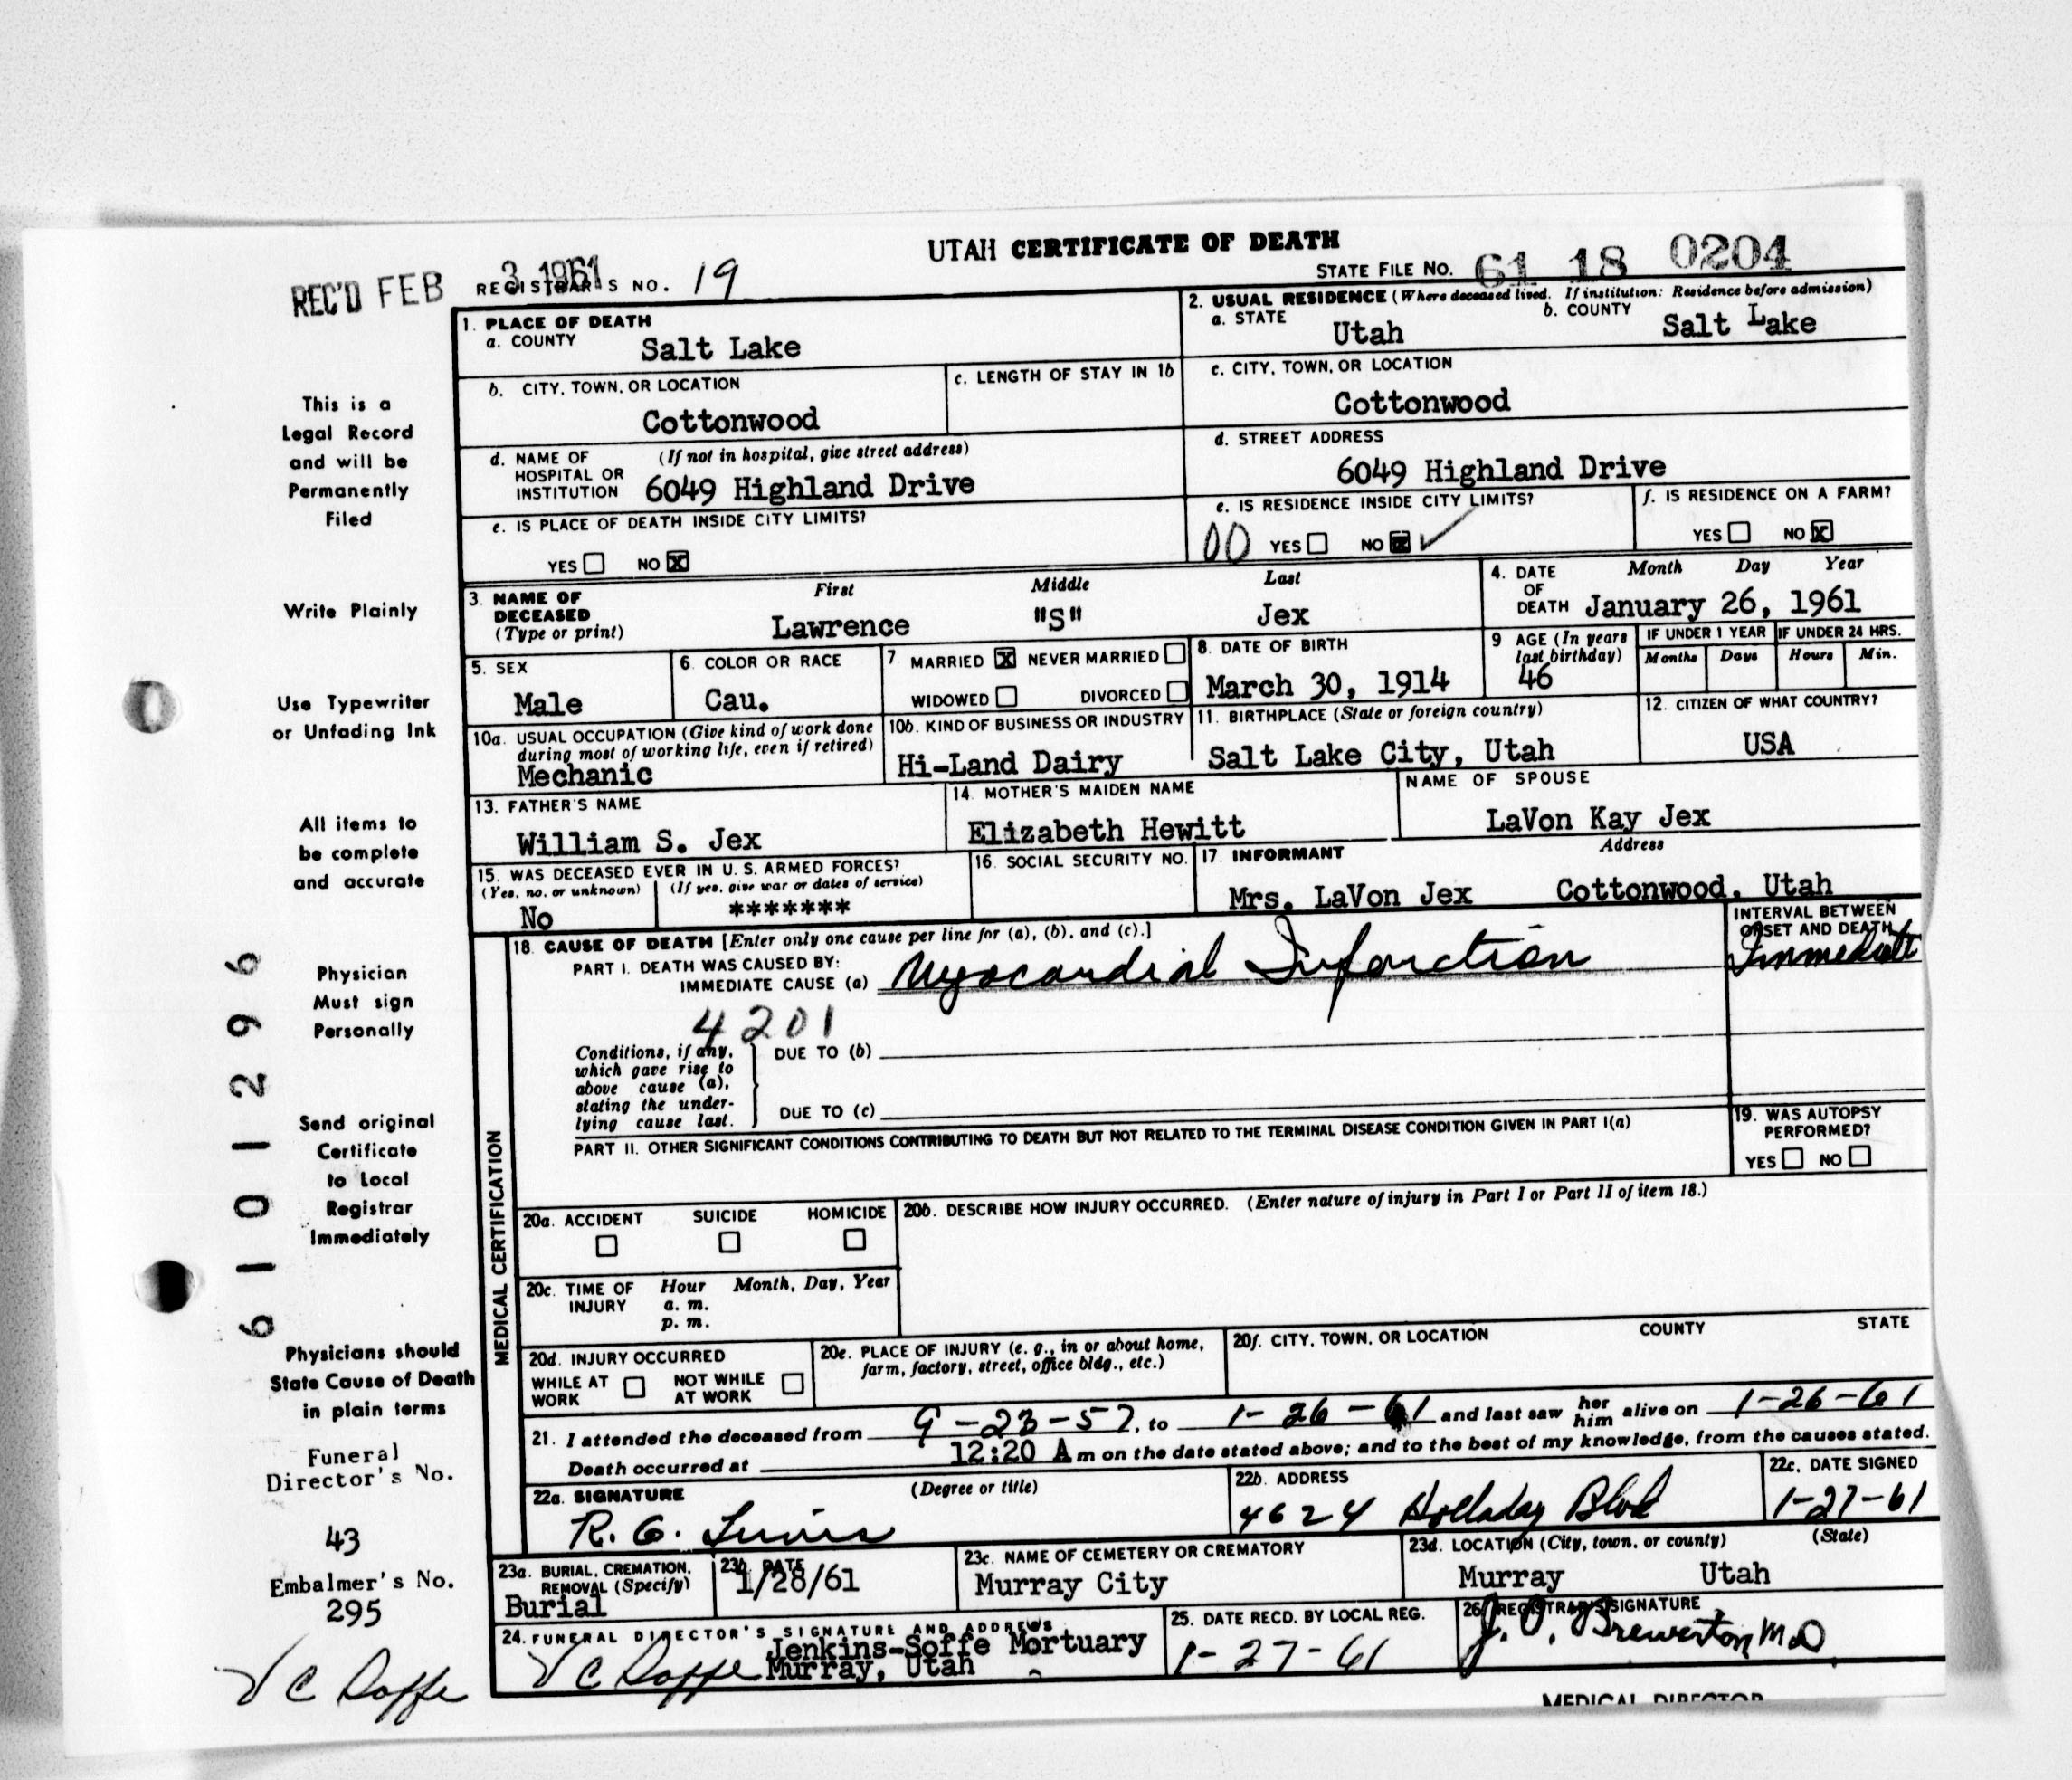 UTAH CERTIFICATE OF DEATH
REC'D FEB 3 1961
REGISTRAR'S NO. 19
STATE FILE NO. 61 18 0204
1. PLACE OF DEATH
a. COUNTY Salt Lake
2. USUAL RESIDENCE (Where deceased lived. If institution: Residence before admission)
a. STATE Utah b. COUNTY Salt Lake
b. CITY, TOWN, OR LOCATION Cottonwood
c. LENGTH OF STAY IN 1b
c. CITY, TOWN, OR LOCATION Cottonwood
d. NAME OF HOSPITAL OR INSTITUTION (If not in hospital, give street address) 6049 Highland Drive
d. STREET ADDRESS 6049 Highland Drive
e. IS PLACE OF DEATH INSIDE CITY LIMITS?
YES NO X
e. IS RESIDENCE INSIDE CITY LIMITS?
00 YES NO X
f. IS RESIDENCE ON A FARM?
YES NO X
3. NAME OF DECEASED (Type or print)
First Middle Last
Lawrence "S" Jex
4. DATE OF DEATH Month Day Year
January 26, 1961
5. SEX Male
6. COLOR OR RACE Cau.
7 MARRIED X NEVER MARRIED
WIDOWED DIVORCED
8. DATE OF BIRTH March 30, 1914
9 AGE (In years last birthday) 46
IF UNDER 1 YEAR Months Days
IF UNDER 24 HRS. Hours Min.
10a. USUAL OCCUPATION (Give kind of work done during most of working life, even if retired) Mechanic
10b. KIND OF BUSINESS OR INDUSTRY Hi-Land Dairy
11. BIRTHPLACE (State or foreign country) Salt Lake City, Utah
12. CITIZEN OF WHAT COUNTRY? USA
13. FATHER'S NAME William S. Jex
14. MOTHER'S MAIDEN NAME Elizabeth Hewitt
NAME OF SPOUSE LaVon Kay Jex
15. WAS DECEASED EVER IN U. S. ARMED FORCES?
(Yes, no, or unknown) (If yes, give war or dates of service)
No *******
16. SOCIAL SECURITY NO.
17. INFORMANT Address
Mrs. LaVon Jex Cottonwood, Utah
MEDICAL CERTIFICATION
18. CAUSE OF DEATH [Enter only one cause per line for (a), (b), and (c).]
PART I. DEATH WAS CAUSED BY:
IMMEDIATE CAUSE (a) Myocardial Infarction
INTERVAL BETWEEN ONSET AND DEATH
Immediate
4201
Conditions, if any, which gave rise to above cause (a), stating the underlying cause last.
DUE TO (b)
DUE TO (c)
PART II. OTHER SIGNIFICANT CONDITIONS CONTRIBUTING TO DEATH BUT NOT RELATED TO THE TERMINAL DISEASE CONDITION GIVEN IN PART I(a)
19. WAS AUTOPSY PERFORMED?
YES NO
20a. ACCIDENT SUICIDE HOMICIDE
20b. DESCRIBE HOW INJURY OCCURRED. (Enter nature of injury in Part I or Part II of item 18.)
20c. TIME OF INJURY Hour Month, Day, Year
a. m.
p. m.
20d. INJURY OCCURRED
WHILE AT WORK NOT WHILE AT WORK
20e. PLACE OF INJURY (e. g., in or about home, farm, factory, street, office bldg., etc.)
20f. CITY, TOWN, OR LOCATION COUNTY STATE
21. I attended the deceased from 9-23-57, to 1-26-61 and last saw her him alive on 1-26-61
Death occurred at 12:20 A m on the date stated above; and to the best of my knowledge, from the causes stated.
22a. SIGNATURE (Degree or title)
R. G.
22b. ADDRESS 4624 Holladay Blvd
22c. DATE SIGNED 1-27-61
23a. BURIAL, CREMATION, REMOVAL (Specify) Burial
23b. DATE 1/28/61
23c. NAME OF CEMETERY OR CREMATORY Murray City
23d. LOCATION (City, town, or county) (State)
Murray Utah
24. FUNERAL DIRECTOR'S SIGNATURE AND ADDRESS
Jenkins-Soffe Mortuary
V C Soffe Murray, Utah
25. DATE RECD. BY LOCAL REG. 1-27-61
26. REGISTRAR'S SIGNATURE
J. O. Brewerton M.D
MEDICAL DIRECTOR
This is a
Legal Record
and will be
Permanently
Filed
Write Plainly
Use Typewriter
or Unfading Ink
All items to
be complete
and accurate
Physician
Must sign
Personally
Send original
Certificate
to Local
Registrar
Immediately
Physicians should
State Cause of Death
in plain terms
Funeral
Director's No.
43
Embalmer's No.
295
V C Soffe
6101296